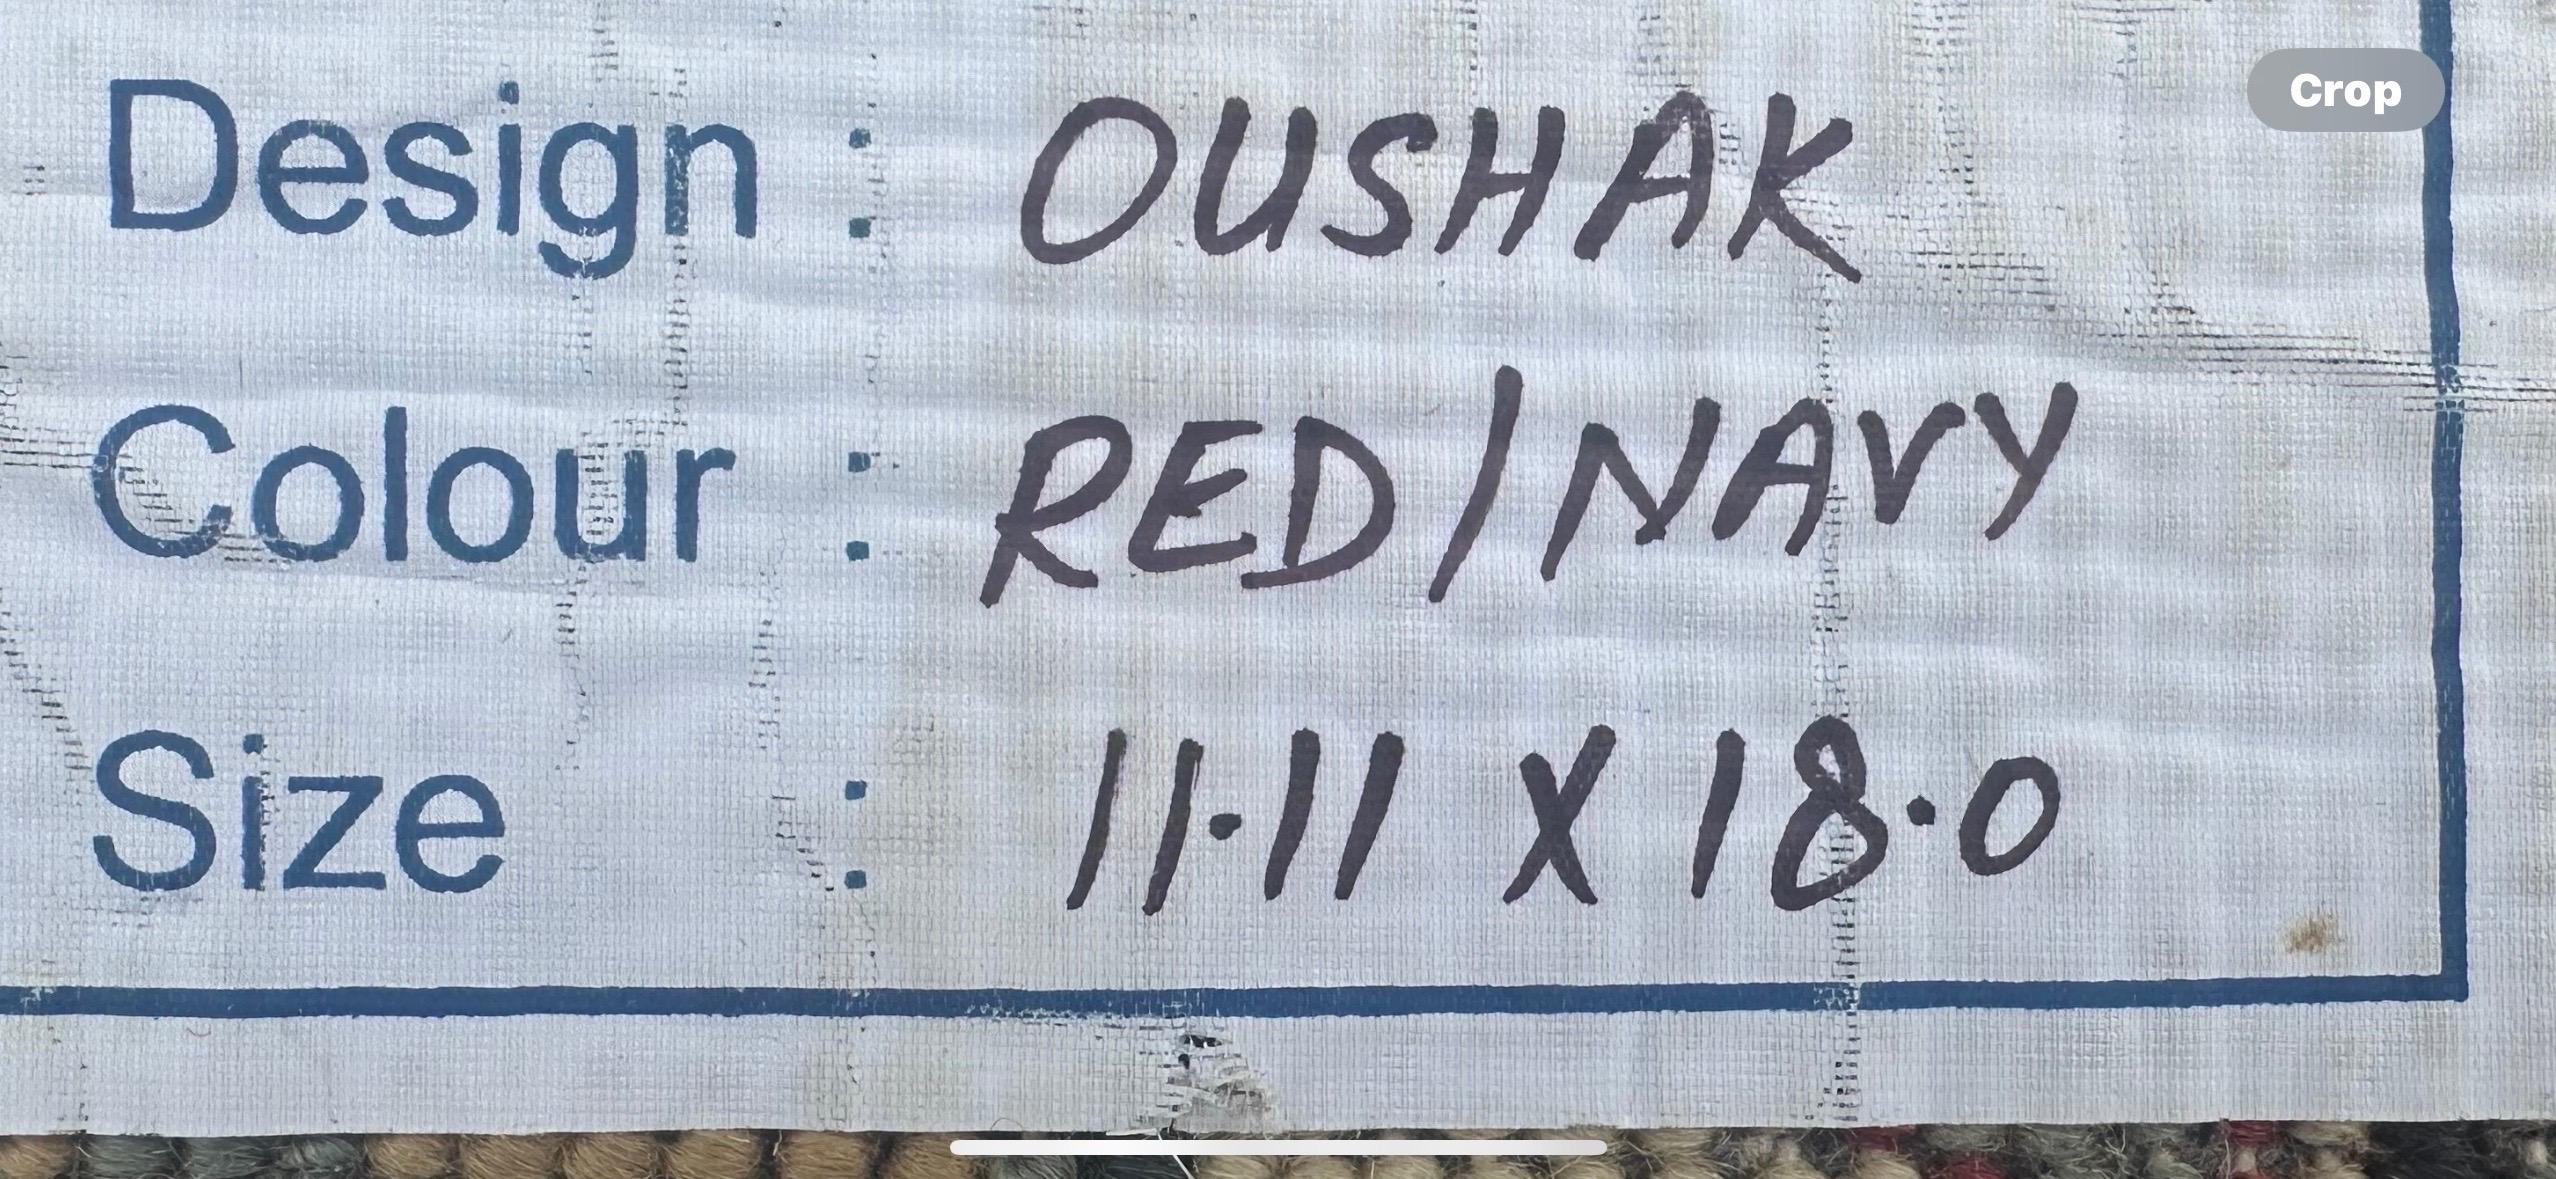 Crop
Design : OUSHAK
Colour : RED/NAVY
Size : 11.11 X 18.0